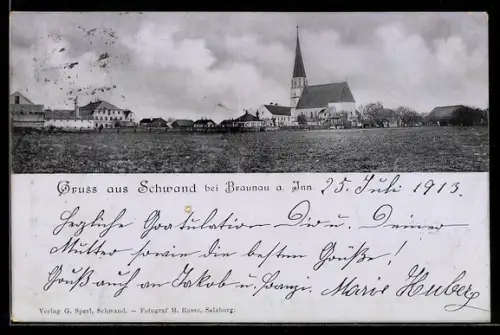 Gruss aus Schwand bei Braunau a. Inn 25. Juli 1913.
Herzliche Gratulation Dir u. Deiner
Mutter sowie die besten Grüße!
Gruß auch an Jakob u. Marie Huber
Verlag G. Sperl, Schwand. – Fotograf M. Russo, Salzburg.